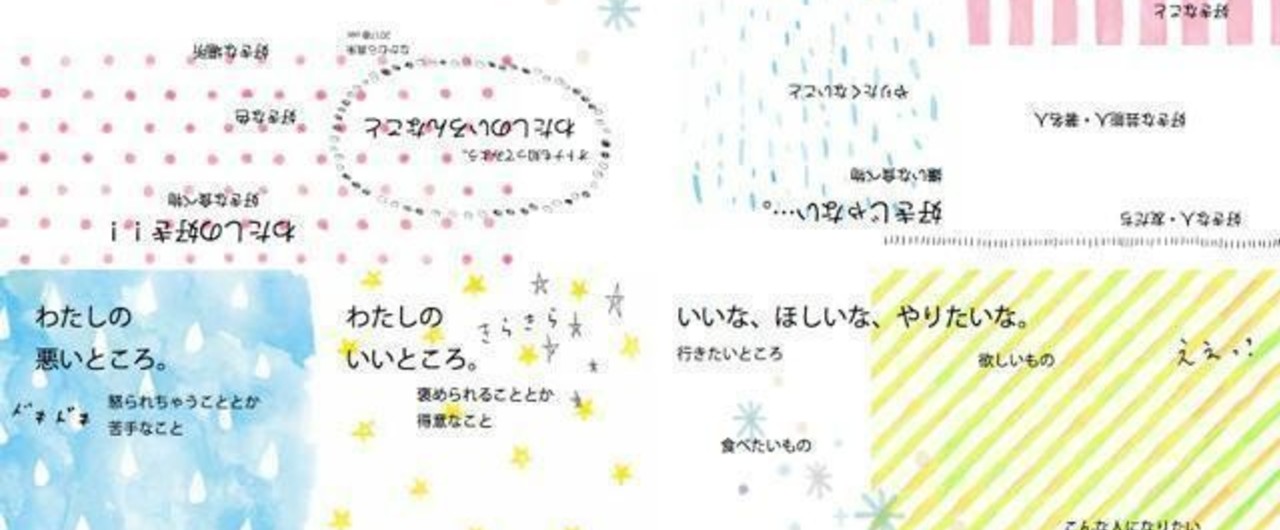 好きなこと
好きな芸能人・著名人
好きな人・友だち
やりたくないこと
嫌いな食べ物
好きじゃない…。
わたしのいろんなこと
オトナも知ってみよう。
好きな場所
好きな色
好きな食べ物
わたしの好き！！
わたしの
悪いところ。
怒られちゃうこととか
苦手なこと
わたしの
いいところ。
きらきら
褒められることとか
得意なこと
いいな、ほしいな、やりたいな。
行きたいところ
欲しいもの
食べたいもの
こんな人になりたい